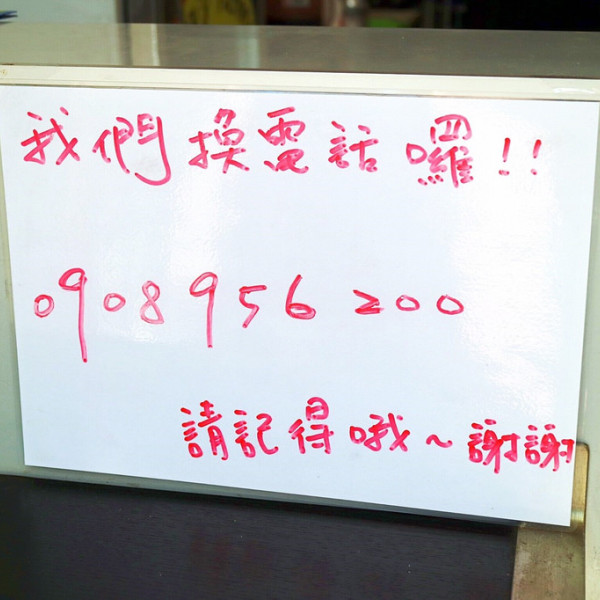 我們換電話囉!!
0908956200
請記得哦~謝謝